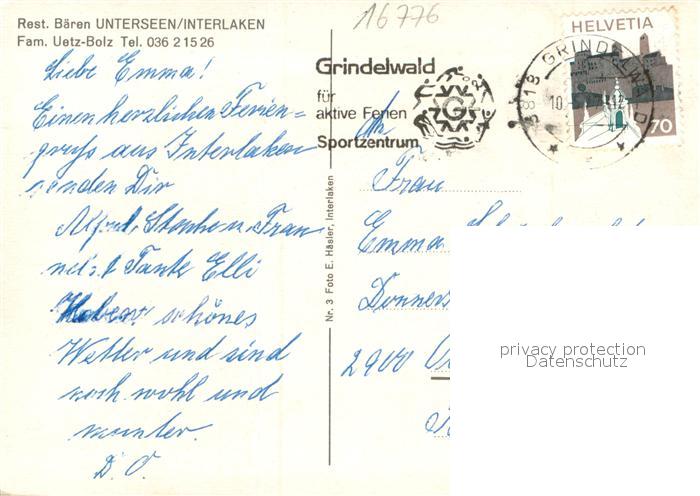 Rest. Bären UNTERSEEN/INTERLAKEN
Fam. Uetz-Bolz Tel. 036 2 15 26
16776
Liebe Emma!
Einen herzlichen Ferien=
gruß aus Interlaken
senden Dir
Alfred,
Tante Elli
Haben schönes
Wetter und sind
noch wohl und
munter.
D. O.
Nr. 3 Foto E. Häsler, Interlaken
Grindelwald
für
aktive Ferien
Sportzentrum
G
3818 GRINDELWALD
10.
HELVETIA
70
An
Frau
Emma
Donners
2900
privacy protection
Datenschutz